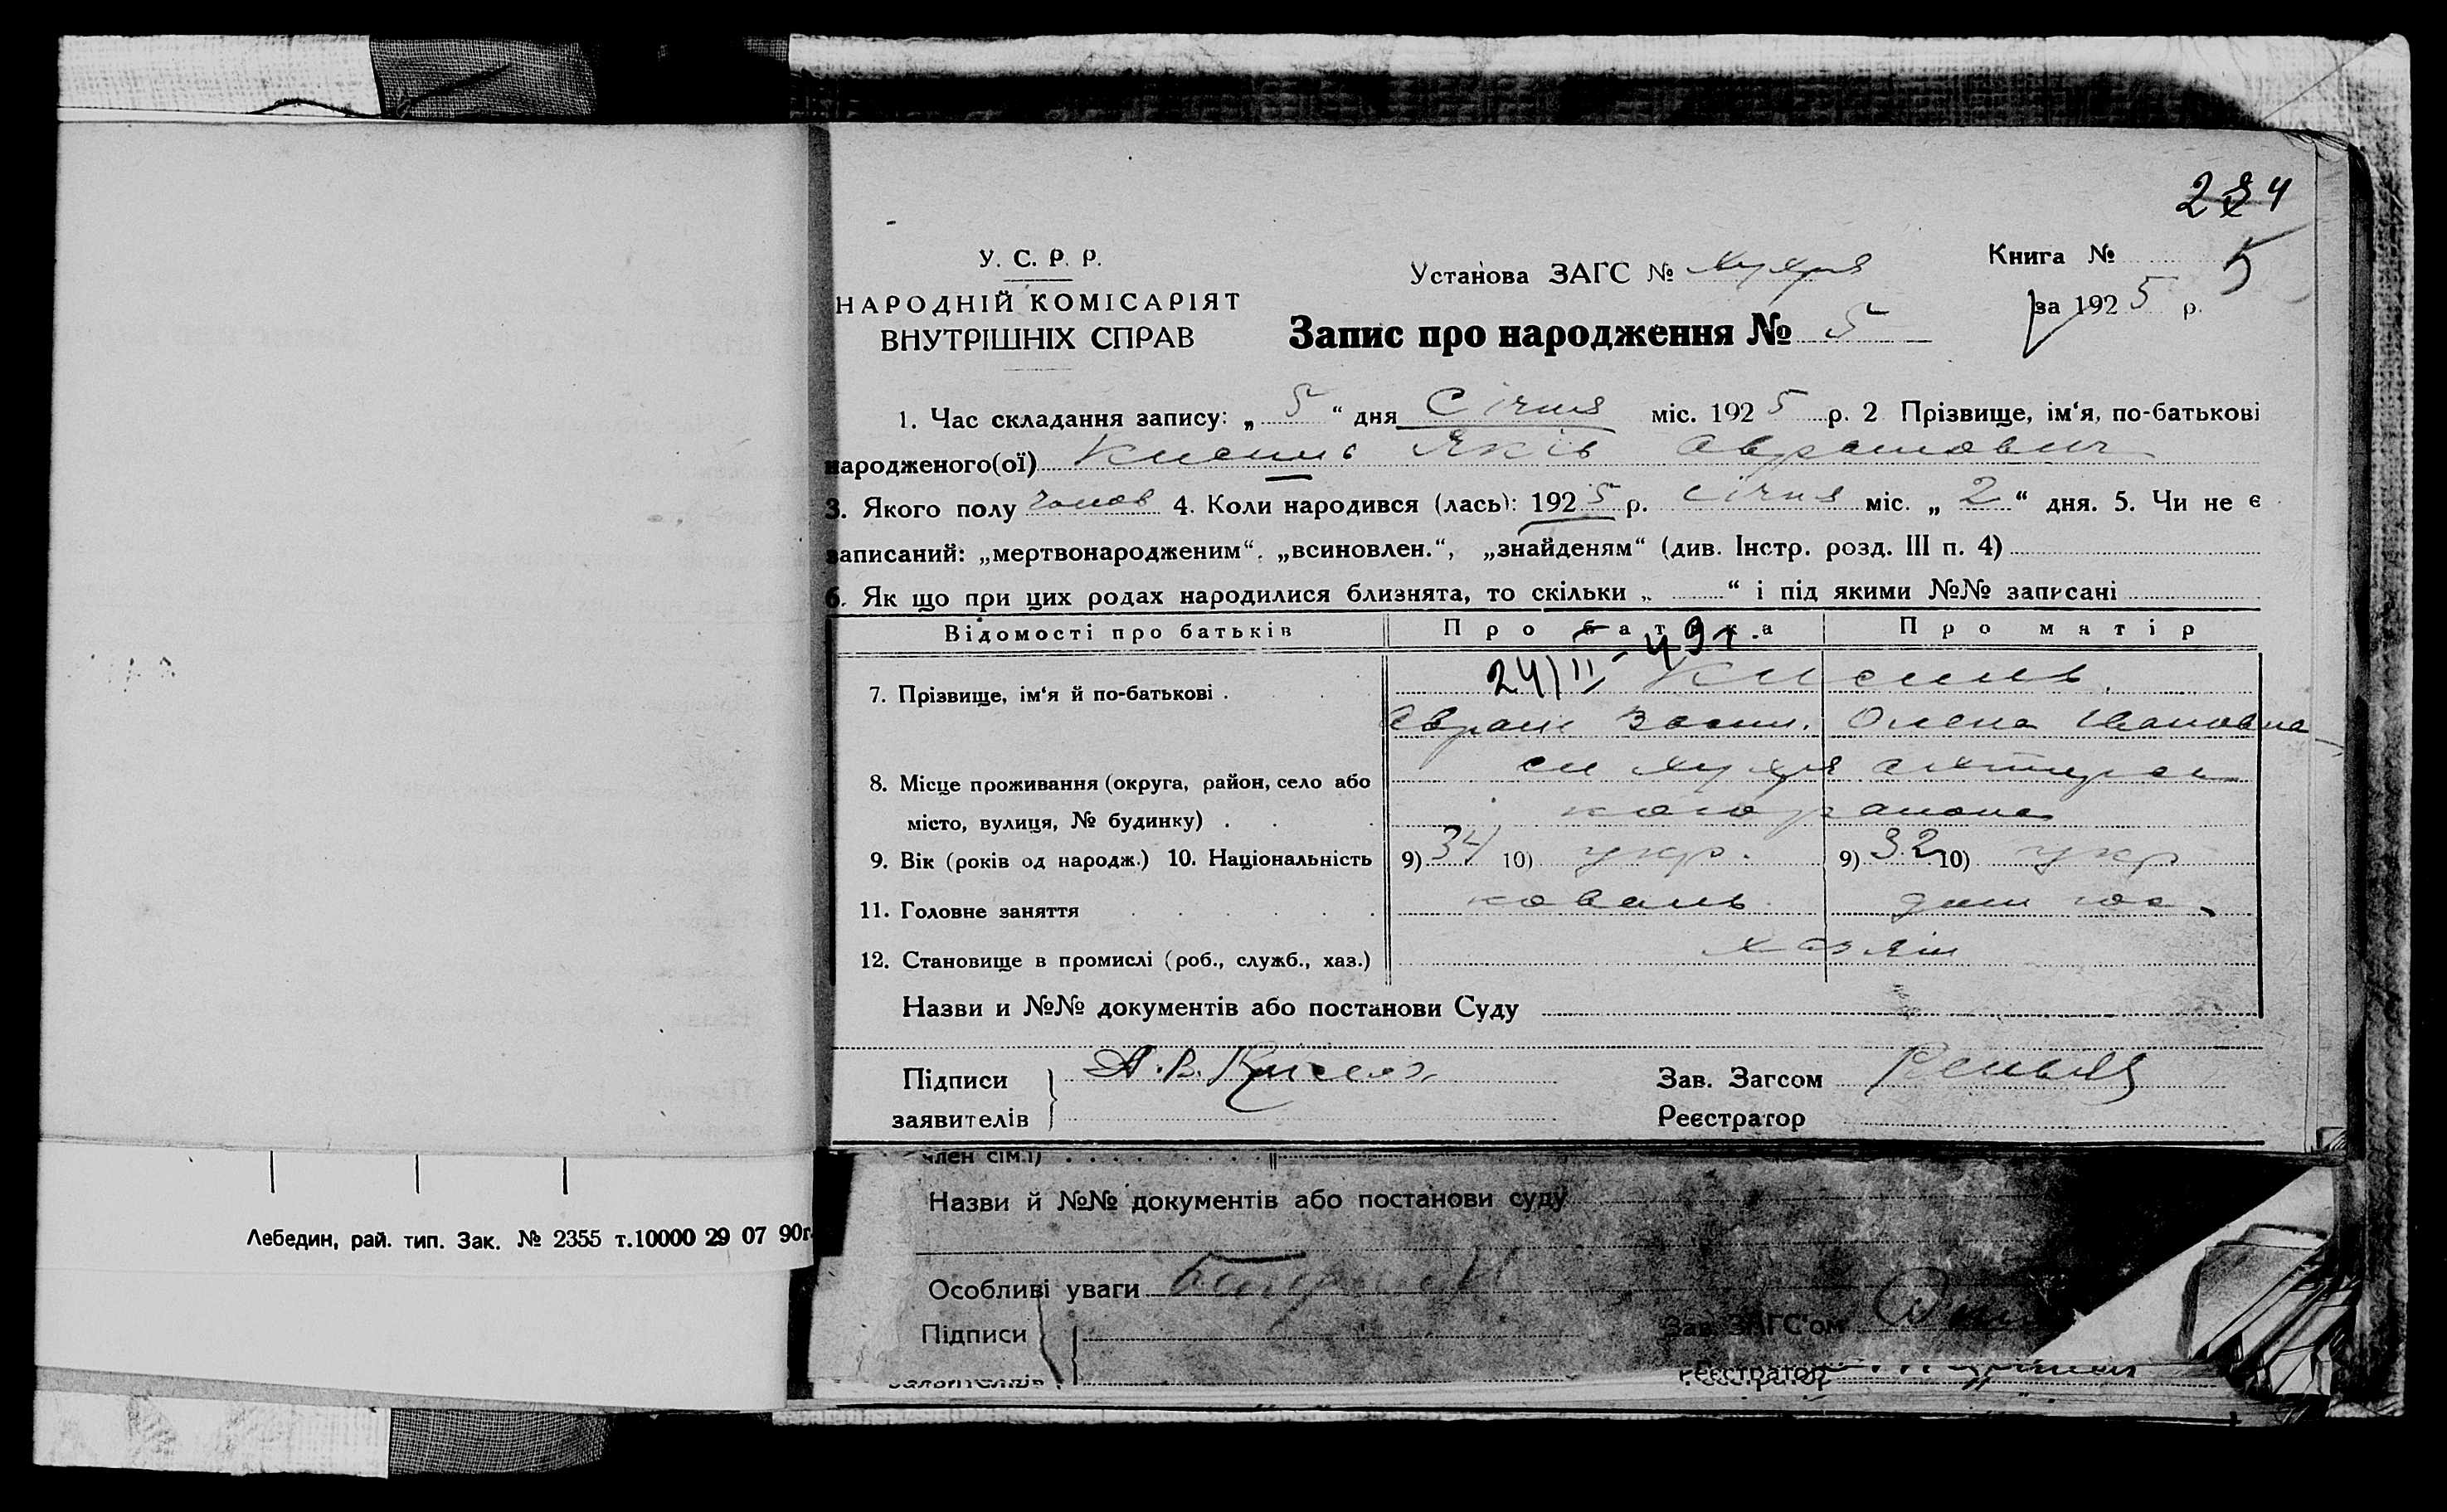 234
У. С. Р. Р.
НАРОДНІЙ КОМІСАРІЯТ
ВНУТРІШНІХ СПРАВ
Установа ЗАГС № Хухря
Книга № 5
за 1925 р.
Запис про народження № 5
1. Час складання запису: „ 5 “ дня Січня міс. 1925 р. 2 Прізвище, ім‘я, по-батькові
народженого(ої) Кисиль Яків Аврамович
3. Якого полу чолов 4. Коли народився (лась): 1925 р. січня міс. „ 2 “ дня. 5. Чи не є
записаний: „мертвонародженим“, „всиновлен.“, „знайденям“ (див. Інстр. розд. III п. 4)
6. Як що при цих родах народилися близнята, то скільки „ “ і під якими №№ записані
Відомості про батьків Про батька Про матір
24/II-49г.
7. Прізвище, ім‘я й по-батькові . Кисиль
Аврам Васил. Олена Івановна
8. Місце проживання (округа, район, село або сл Хухря Охтирсь
місто, вулиця, № будинку) . кого району
9. Вік (років од народж.) 10. Національність 9) 34 10) укр. 9) 32 10) укр
11. Головне заняття коваль дом гос.
12. Становище в промислі (роб., служб., хаз.) хазяін
Назви и №№ документів або постанови Суду
Підписи А. В. Кисель Зав. Загсом
заявителів Реєстратор
член сім.)
Назви й №№ документів або постанови суду
Особливі уваги
Підписи Зав. ЗАГС'ом
Реєстратор
Лебедин, рай. тип. Зак. № 2355 т.10000 29 07 90г.